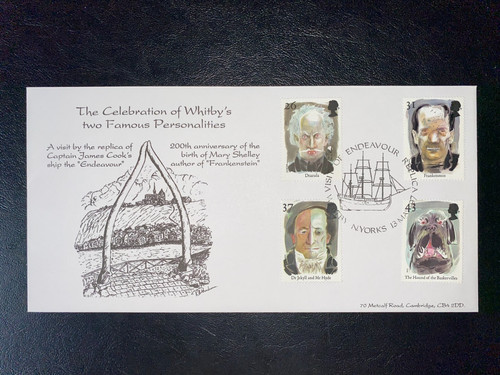 The Celebration of Whitby's
two Famous Personalities
A visit by the replica of
Captain James Cook's
ship the "Endeavour"
200th anniversary of the
birth of Mary Shelley
author of "Frankenstein"
26
Dracula
31
Frankenstein
37
Dr Jekyll and Mr Hyde
43
The Hound of the Baskervilles
VISIT OF ENDEAVOUR REPLICA
WHITBY N.YORKS 13 MAY
70 Metcalf Road, Cambridge, CB4 2DD.